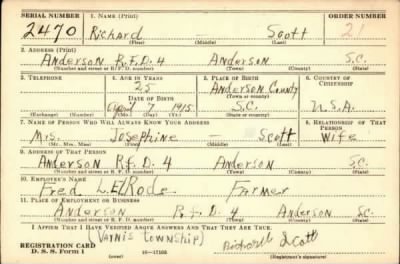 SERIAL NUMBER 1. NAME (Print) ORDER NUMBER
2470 Richard — Scott 21
(First) (Middle) (Last)
2. ADDRESS (Print)
Anderson R.F.D. 4 Anderson S.C.
(Number and street or R. F. D. number) (Town) (County) (State)
3. TELEPHONE 4. AGE IN YEARS 5. PLACE OF BIRTH 6. COUNTRY OF CITIZENSHIP
25 Anderson County
DATE OF BIRTH (Town or county)
April 7 1915 S.C. U.S.A.
(Exchange) (Number) (Mo.) (Day) (Yr.) (State or country)
7. NAME OF PERSON WHO WILL ALWAYS KNOW YOUR ADDRESS 8. RELATIONSHIP OF THAT PERSON
Mrs. Josephine — Scott Wife
(Mr., Mrs., Miss) (First) (Middle) (Last)
9. ADDRESS OF THAT PERSON
Anderson R.f.D. 4 Anderson S.C.
(Number and street or R. F. D. number) (Town) (County) (State)
10. EMPLOYER'S NAME
Fred L. ElRode Farmer
11. PLACE OF EMPLOYMENT OR BUSINESS
Anderson R.f.D. 4 Anderson S.C.
(Number and street or R. F. D. number) (Town) (County) (State)
I AFFIRM THAT I HAVE VERIFIED ABOVE ANSWERS AND THAT THEY ARE TRUE.
REGISTRATION CARD township) Richard Scott
D. S. S. Form 1 (over) (Registrant's signature)